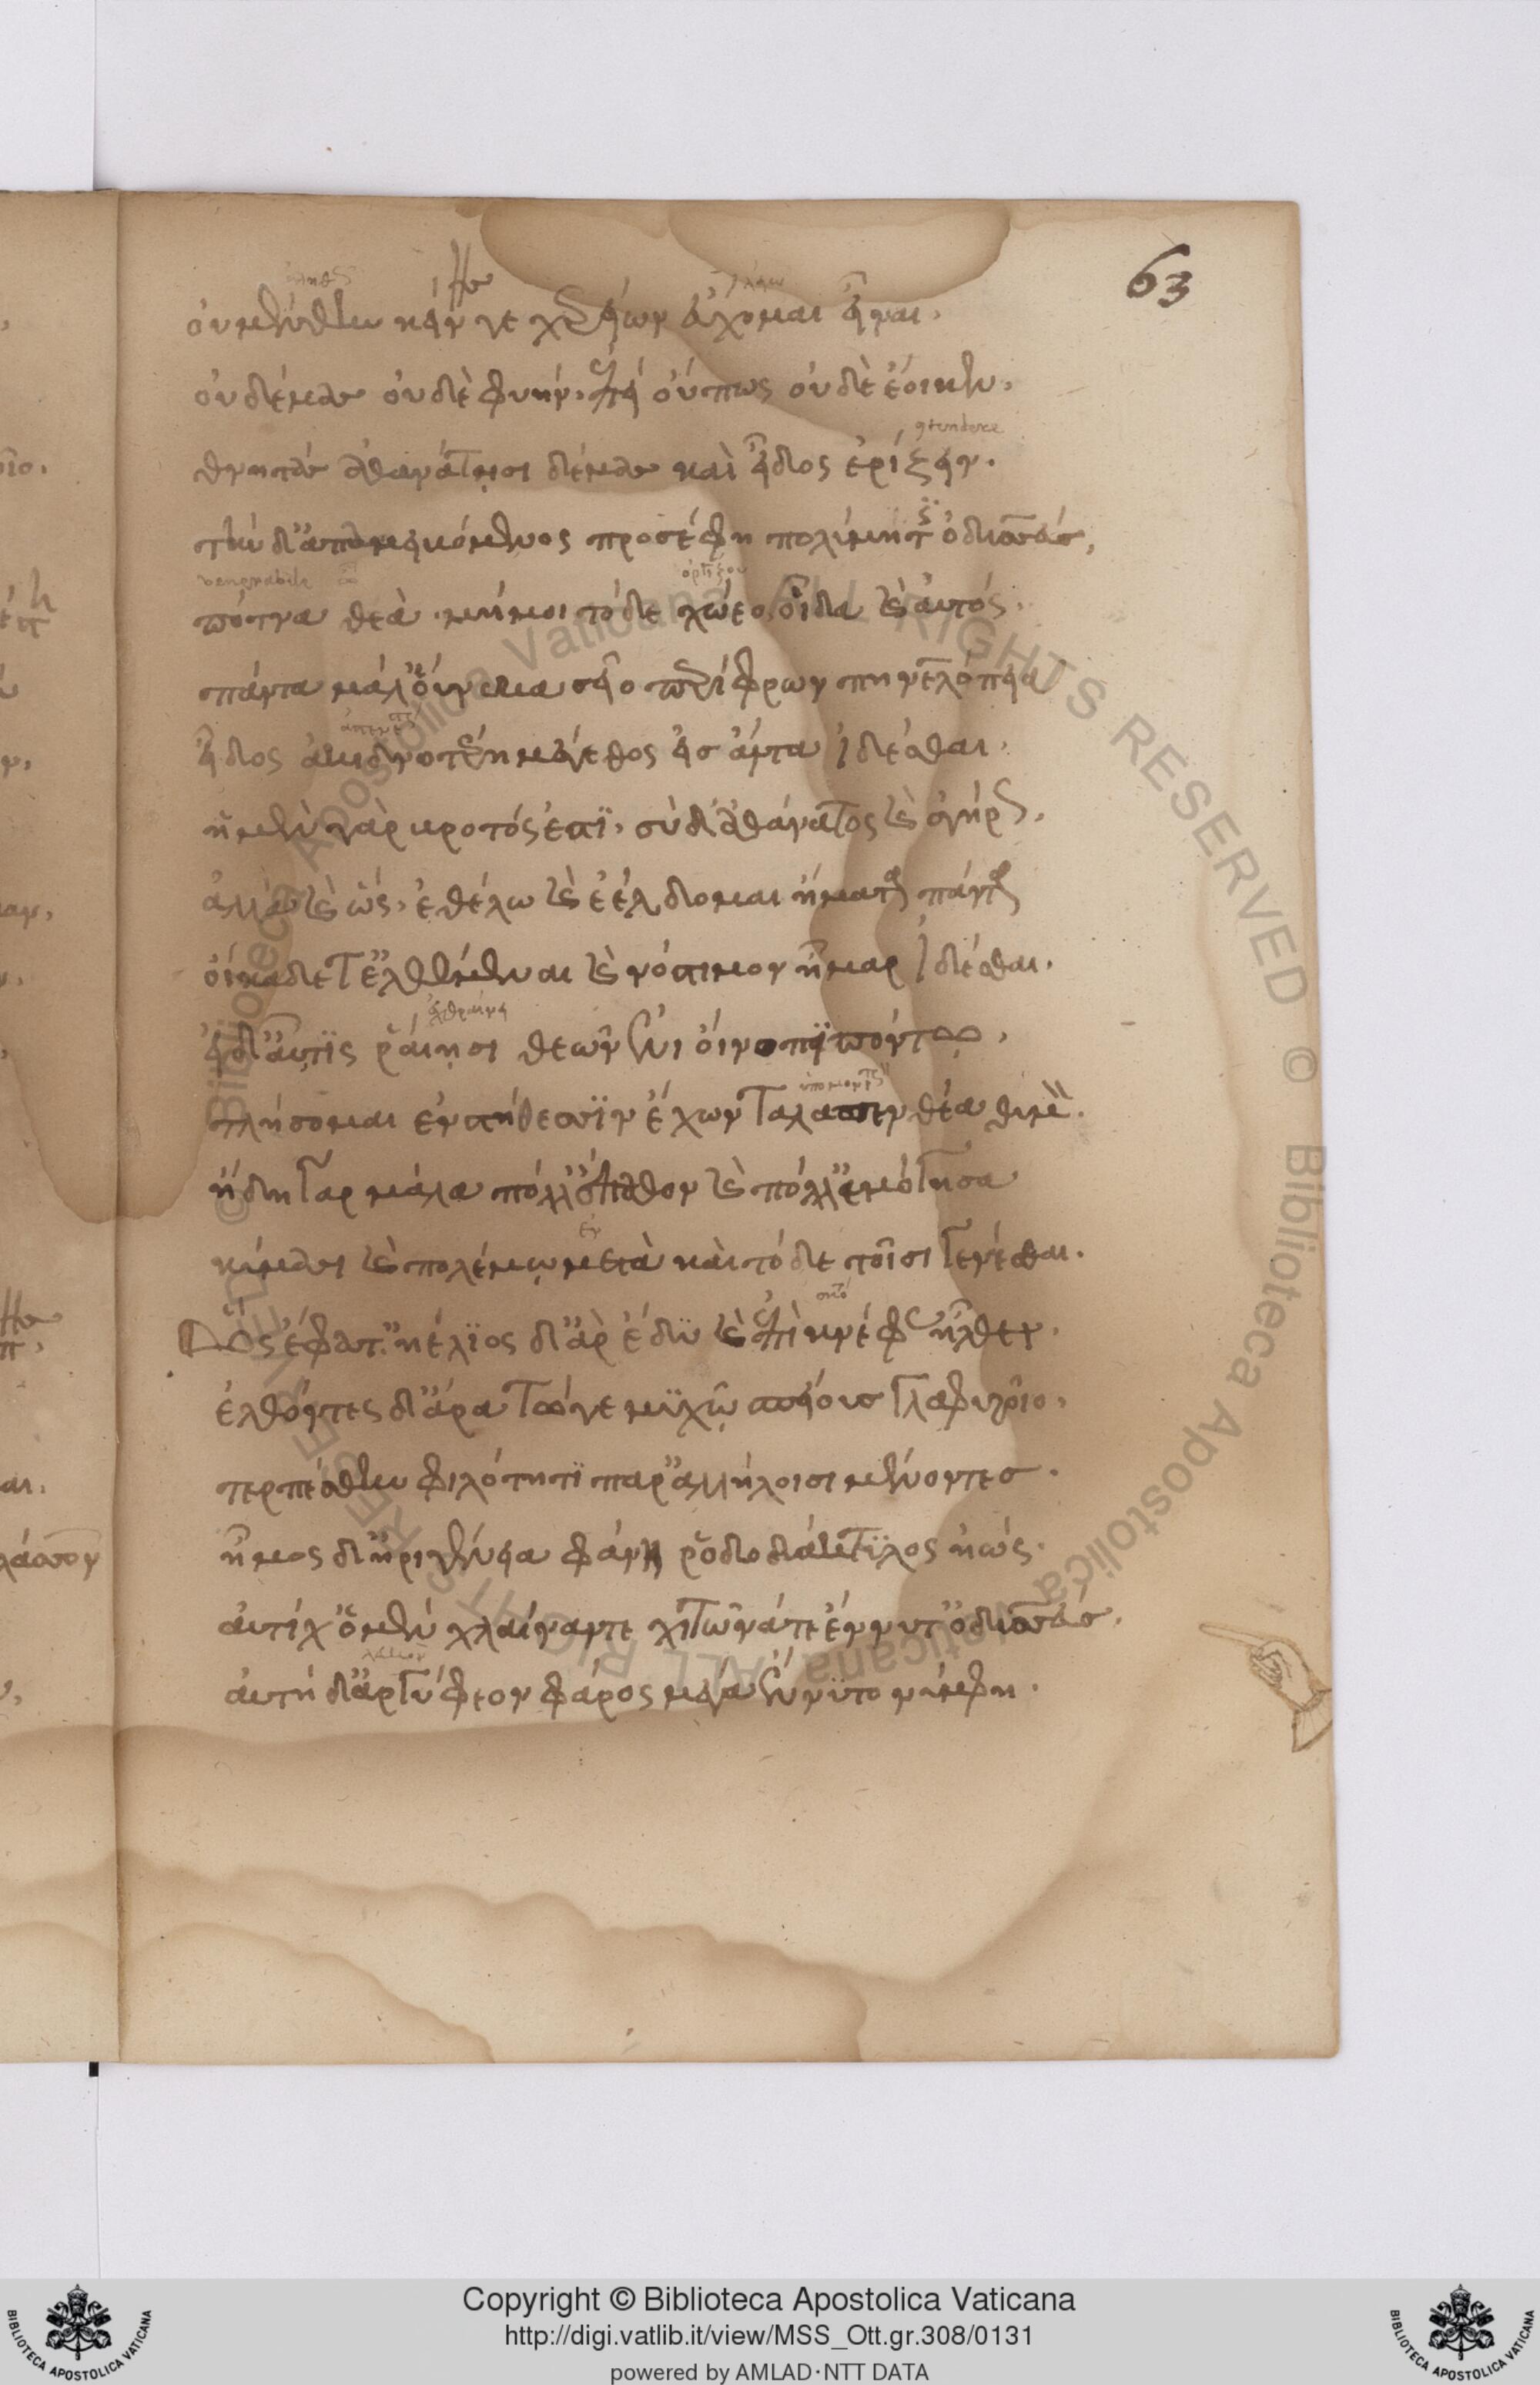 63
οὐ μένθην κείνης γε χερείων εὔχομαι εἶναι.
οὐ δέμας οὐδὲ φυήν. ἐπεὶ οὔπως οὐδὲ ἔοικεν.
contendere
θνητὰς ἀθανάτηισι δέμας καὶ εἶδος ἐρίζειν.
τὴν δ' ἀπαμειβόμενος προσέφη πολύμητις ὀδυσσεύς,
venerabile
πότνα θεὰ. μή μοι τόδε χώεο, οἶδα καὶ αὐτός.
πάντα μάλ' οὕνεκα σεῖο περίφρων πηνελόπεια
εἶδος ἀκιδνοτέρη μέγεθος εἰσ ἄντα ἰδέσθαι.
ἡ μὲν γὰρ βροτός ἐστϊ. σὺ δ' ἀθάνατος καὶ ἀγήρως.
ἀλλὰ καὶ ὥς. ἐθέλω καὶ ἐέλδομαι ἤματα πάντα
οἴκαδέ τ' ἐλθέμεναι καὶ νόστιμον ἦμαρ ἰδέσθαι.
εἰ δ' αὖτϊς ῥαίηισι θεῶν ἐνὶ οἴνοπϊ πόντω.
τλήσομαι ἐν στήθεσσϊν ἔχων ταλαπενθέα θυμὸν.
ἤδη γαρ μάλα πόλλ' ἔπαθον καὶ πόλλ' ἐμόγησα
κύμασι καὶ πολέμω μετὰ καὶ τόδε τοῖσι γενέσθαι.
Ὣς ἔφατ' ἠέλϊος δ' ἄρ ἔδϋ καὶ ἐπὶ κνέφας ἦλθεν.
ἐλθόντες δ' ἄρα τώγε μϋχῶ σπείους γλαφυροῖο.
τερπέσθην φιλότητϊ παρ' ἀλλήλοισι μένοντεσ.
ἦμος δ' ἠριγένεια φάνη ῥοδοδάκτϋλος ἠώς.
αὐτίχ' ὁ μὲν χλαῖναντε χιτῶνάτε ἕννυτ' ὀδυσσεύσ.
αὐτὴ δ' ἀργύφεον φάρος μέγα ἕννϋτο νύμφη.
Copyright © Biblioteca Apostolica Vaticana
http://digi.vatlib.it/view/MSS_Ott.gr.308/0131
powered by AMLAD·NTT DATA